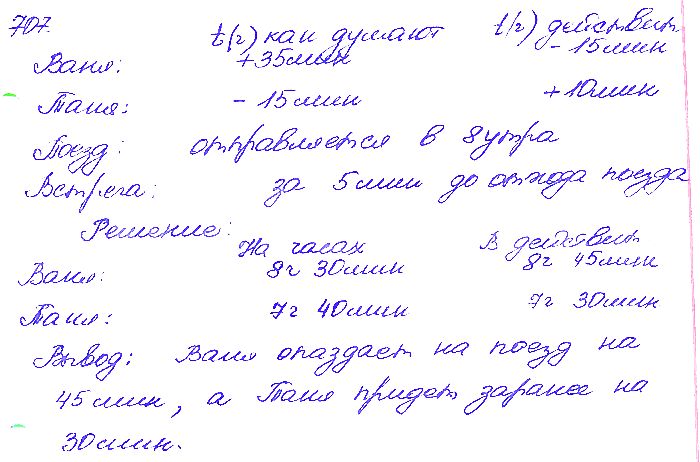 707.
t(г) как думают t(г) действит
Ваня: +35мин - 15мин
Таня: - 15мин +10мин
Поезд: отправляется в 8утра
Встреча: за 5мин до отхода поезда
Решение:
На часах В действит
Ваня: 8г 30мин 8г 45мин
Таня: 7г 40мин 7г 30мин
Вывод: Ваня опаздает на поезд на
45мин, а Таня придет заранее на
30мин.